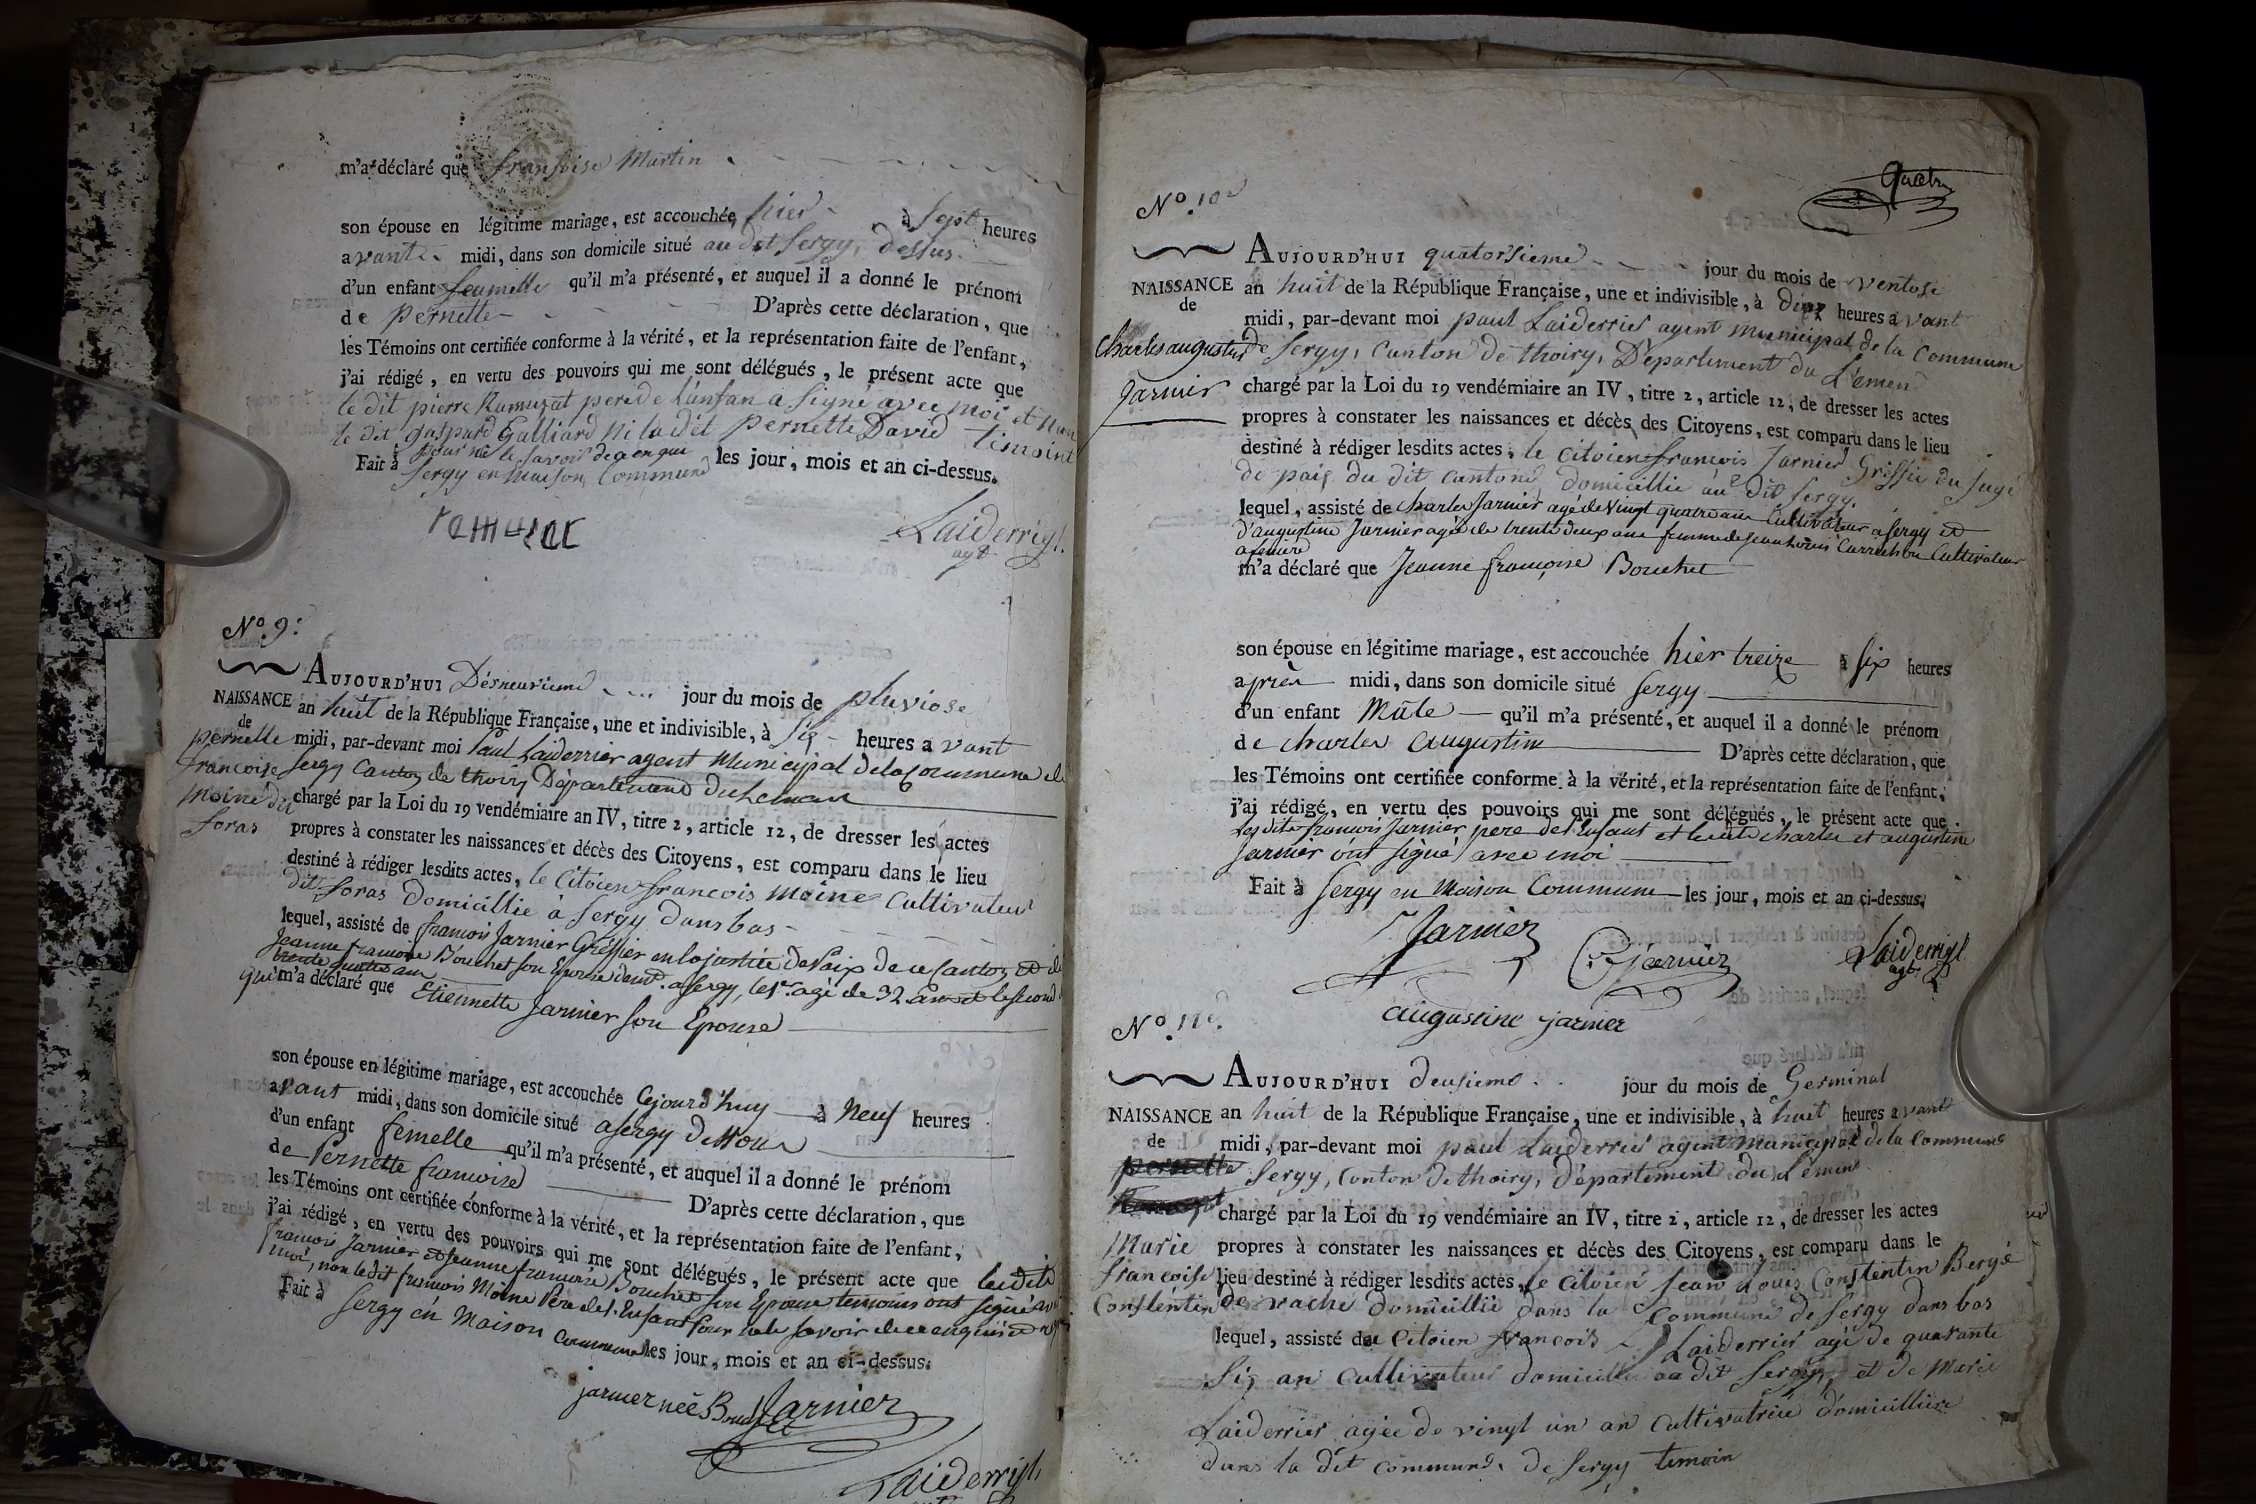 m'a déclaré que fransoise Martin
son épouse en légitime mariage, est accouchée hier à sept heures
avant midi, dans son domicile situé au dit Sergy, dessus
d'un enfant feumelle qu'il m'a présenté, et auquel il a donné le prénom
de pernette D'après cette déclaration, que
les Témoins ont certifiée conforme à la vérité, et la représentation faite de l'enfant,
j'ai rédigé, en vertu des pouvoirs qui me sont délégués, le présent acte que
le dit pierre Ramuzat pere de l'anfan a signé avec moi et non
le dit gaspard Galliard ni la dit Pernette David temoint
pour ne le savoir de ce enquis
Fait à Sergy en maison Commune les jour, mois et an ci-dessus.
Laiderrier
agt
N.º 9.
AUJOURD'HUI Désneuvieme jour du mois de pluviose
NAISSANCE an huit de la République Française, une et indivisible, à six heures avant
de
pernette midi, par-devant moi Paul Laiderrier agent Municipal de la Commune de
francoise Sergy Canton de thoiry Département du Leman
moine dit chargé par la Loi du 19 vendémiaire an IV, titre 2, article 12, de dresser les actes
foras propres à constater les naissances et décès des Citoyens, est comparu dans le lieu
destiné à rédiger lesdits actes, le Citoien francois moine Cultivateur
dit foras domicillié à Sergy dans bas
lequel, assisté de francois Jarnier Gréffier en la justice de Paix de ce Canton et de
Jeanne francoise Bouchet son Epouse demt. a Sergy, le 1er. agé de 32 ans et le second
trente quatre ans
qui m'a déclaré que Etiennette Jarnier son Epouse
son épouse en légitime mariage, est accouchée Cejourd'huy à Neuf heures
avant midi, dans son domicile situé a Sergy Dessous
d'un enfant femelle qu'il m'a présenté, et auquel il a donné le prénom
de Pernette francoise D'après cette déclaration, que
les Témoins ont certifiée conforme à la vérité, et la représentation faite de l'enfant,
j'ai rédigé, en vertu des pouvoirs qui me sont délégués, le présent acte que lesdits
francois Jarnier et Jeanne francoise Bouchet son Epouse temoins ont signé avec
moi, non ledit francois Moine Pere de l'Enfant pour ne le savoir de ce enquis
Fait à Sergy en Maison Commune les jour, mois et an ci-dessus.
jarnier neé Bouchet Jarnier
Laiderrier
quatre
N.º 10e
AUJOURD'HUI quatorsieme jour du mois de ventose
NAISSANCE an huit de la République Française, une et indivisible, à dix heures avant
de
midi, par-devant moi paul Laiderrier agent municipal de la Commune
Charles augustin de Sergy, Canton de thoiry, Département du Lémen
Jarnier chargé par la Loi du 19 vendémiaire an IV, titre 2, article 12, de dresser les actes
propres à constater les naissances et décès des Citoyens, est comparu dans le lieu
destiné à rédiger lesdits actes, le citoien francois Jarnier Griffié du Jugé
de paix du dit canton domicillié au dit Sergy
lequel, assisté de charles Jarnier agé de Vingt quatre ans Cultivateur a Sergy et
d'augustine Jarnier agée de trente deux ans femme de Jean Louis Cultivateur
m'a déclaré que Jeanne françoise Bouchet
son épouse en légitime mariage, est accouchée hier treize à six heures
après midi, dans son domicile situé Sergy
d'un enfant Mâle qu'il m'a présenté, et auquel il a donné le prénom
de charles augustin D'après cette déclaration, que
les Témoins ont certifiée conforme à la vérité, et la représentation faite de l'enfant,
j'ai rédigé, en vertu des pouvoirs qui me sont délégués, le présent acte que
les dits francois Jarnier pere de l'Enfant et lesdits charles et augustine
Jarnier ont signé avec moi
Fait à Sergy en Maison Commune les jour, mois et an ci-dessus.
Jarnier C. jarnier Laiderrier
agt
augustine jarnier
N.º 11e.
AUJOURD'HUI deusieme jour du mois de Germinal
NAISSANCE an huit de la République Française, une et indivisible, à huit heures avant
de midi, par-devant moi paul Laiderrier agent municipal de la Commune
pernette Sergy, Canton de thoiry, Département du Lémen
Ramuzat chargé par la Loi du 19 vendémiaire an IV, titre 2, article 12, de dresser les actes
Marie propres à constater les naissances et décès des Citoyens, est comparu dans le
francoise lieu destiné à rédiger lesdits actes, le citoien Jean Louis Constentin Bergé
Constentin de vache domicillié dans la Commune de Sergy dans bas
lequel, assisté du Citoien francois Laiderrier agé de quarante
Six an Cultivateur domicillié au dit Sergy, et de Marie
Laiderrier agée de vingt un an Cultivatrice domicilliée
dans la dit commune de Sergy temoin